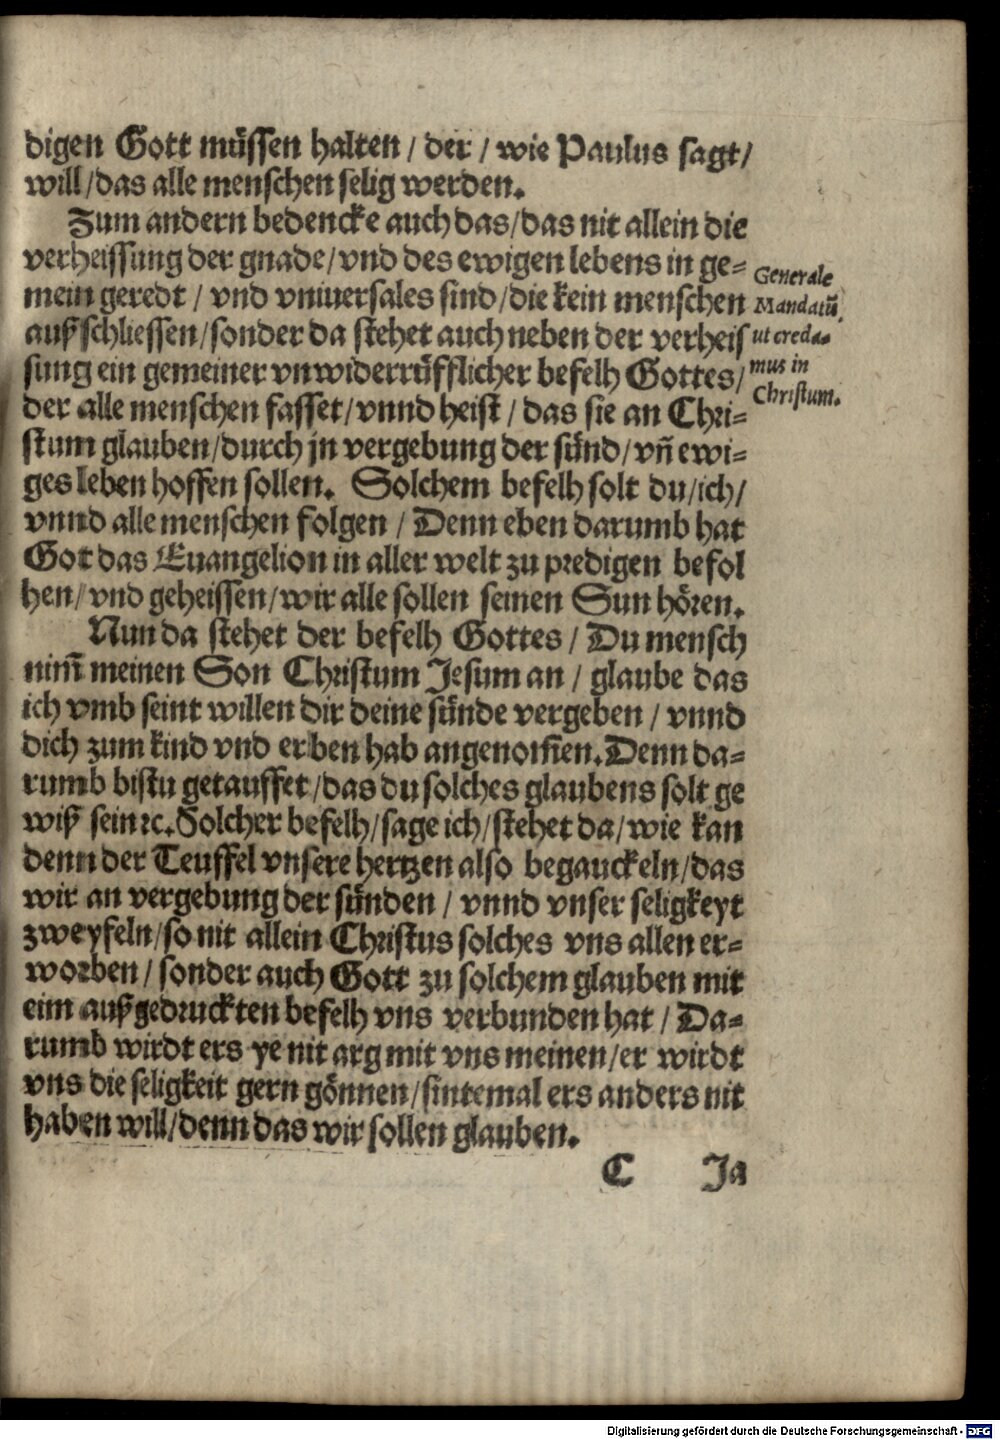 digen Gott müssen halten / der / wie Paulus sagt/
will/das alle menschen selig werden.
Zum andern bedencke auch das/das nit allein die
verheissung der gnade/vnd des ewigen lebens in ge-
mein geredt / vnd vniuersales sind/die kein menschen
außschliessen/sonder da stehet auch neben der verheis
sung ein gemeiner vnwiderrüfflicher befelh Gottes/
der alle menschen fasset/vnnd heist / das sie an Chri-
stum glauben/durch jn vergebung der sünd/vñ ewi-
ges leben hoffen sollen. Solchem befelh solt du/ich/
vnnd alle menschen folgen / Denn eben darumb hat
Got das Euangelion in aller welt zu predigen befol
hen/vnd geheissen/wir alle sollen seinen Sun hören.
Generale
Mandatū,
ut creda-
mus in
Christum.
Nun da stehet der befelh Gottes / Du mensch
nim̄ meinen Son Christum Jesum an / glaube das
ich vmb seint willen dir deine sünde vergeben / vnnd
dich zum kind vnd erben hab angenom̄en. Denn da-
rumb bistu getauffet/das du solches glaubens solt ge
wiß sein ꝛc. Solcher befelh/sage ich/stehet da/wie kan
denn der Teuffel vnsere hertzen also begauckeln/das
wir an vergebung der sünden / vnnd vnser seligkeyt
zweyfeln/so nit allein Christus solches vns allen er-
worben / sonder auch Gott zu solchem glauben mit
eim außgedruckten befelh vns verbunden hat / Da-
rumb wirdt ers ye nit arg mit vns meinen/er wirdt
vns die seligkeit gern gönnen/sintemal ers anders nit
haben will/denn das wir sollen glauben.
C Ja
Digitalisierung gefördert durch die Deutsche Forschungsgemeinschaft - DFG